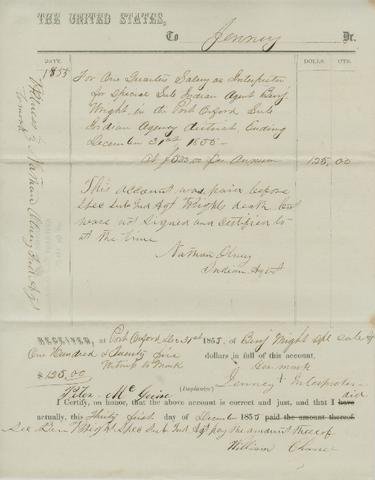 THE UNITED STATES,
To Jenney Dr.
DATE. DOLLS. CTS.
1855
For One Quarters Salary as Interpreter
for Special Sub Indian Agent Benj
Wright, in the Port Orford Sub
Indian Agency District Ending
December 31st 1855-
At $500 per Annum 125,00
This account was paid before
Spec Sub Ind Agt Wrights death but
was not signed and certified to
at the time
Nathan Olney
Indian Agt
Witness to
Nathan Olney Ind Agt
RECEIVED, at Port Orford Dec 31st 1855, of Benj Wright Spl Sub
One Hundred & Twenty five dollars in full of this account,
Witness to Mark her mark
$125.00 Jenney + Interpreter
Peter McGuire (Duplicates.)
I Certify, on honor, that the above account is correct and just, and that I have did
actually, this Thirty first day of December 1855 paid the amount thereof.
see Benj Wright Spec Sub Ind Agt pay the amount thereof
William Chance